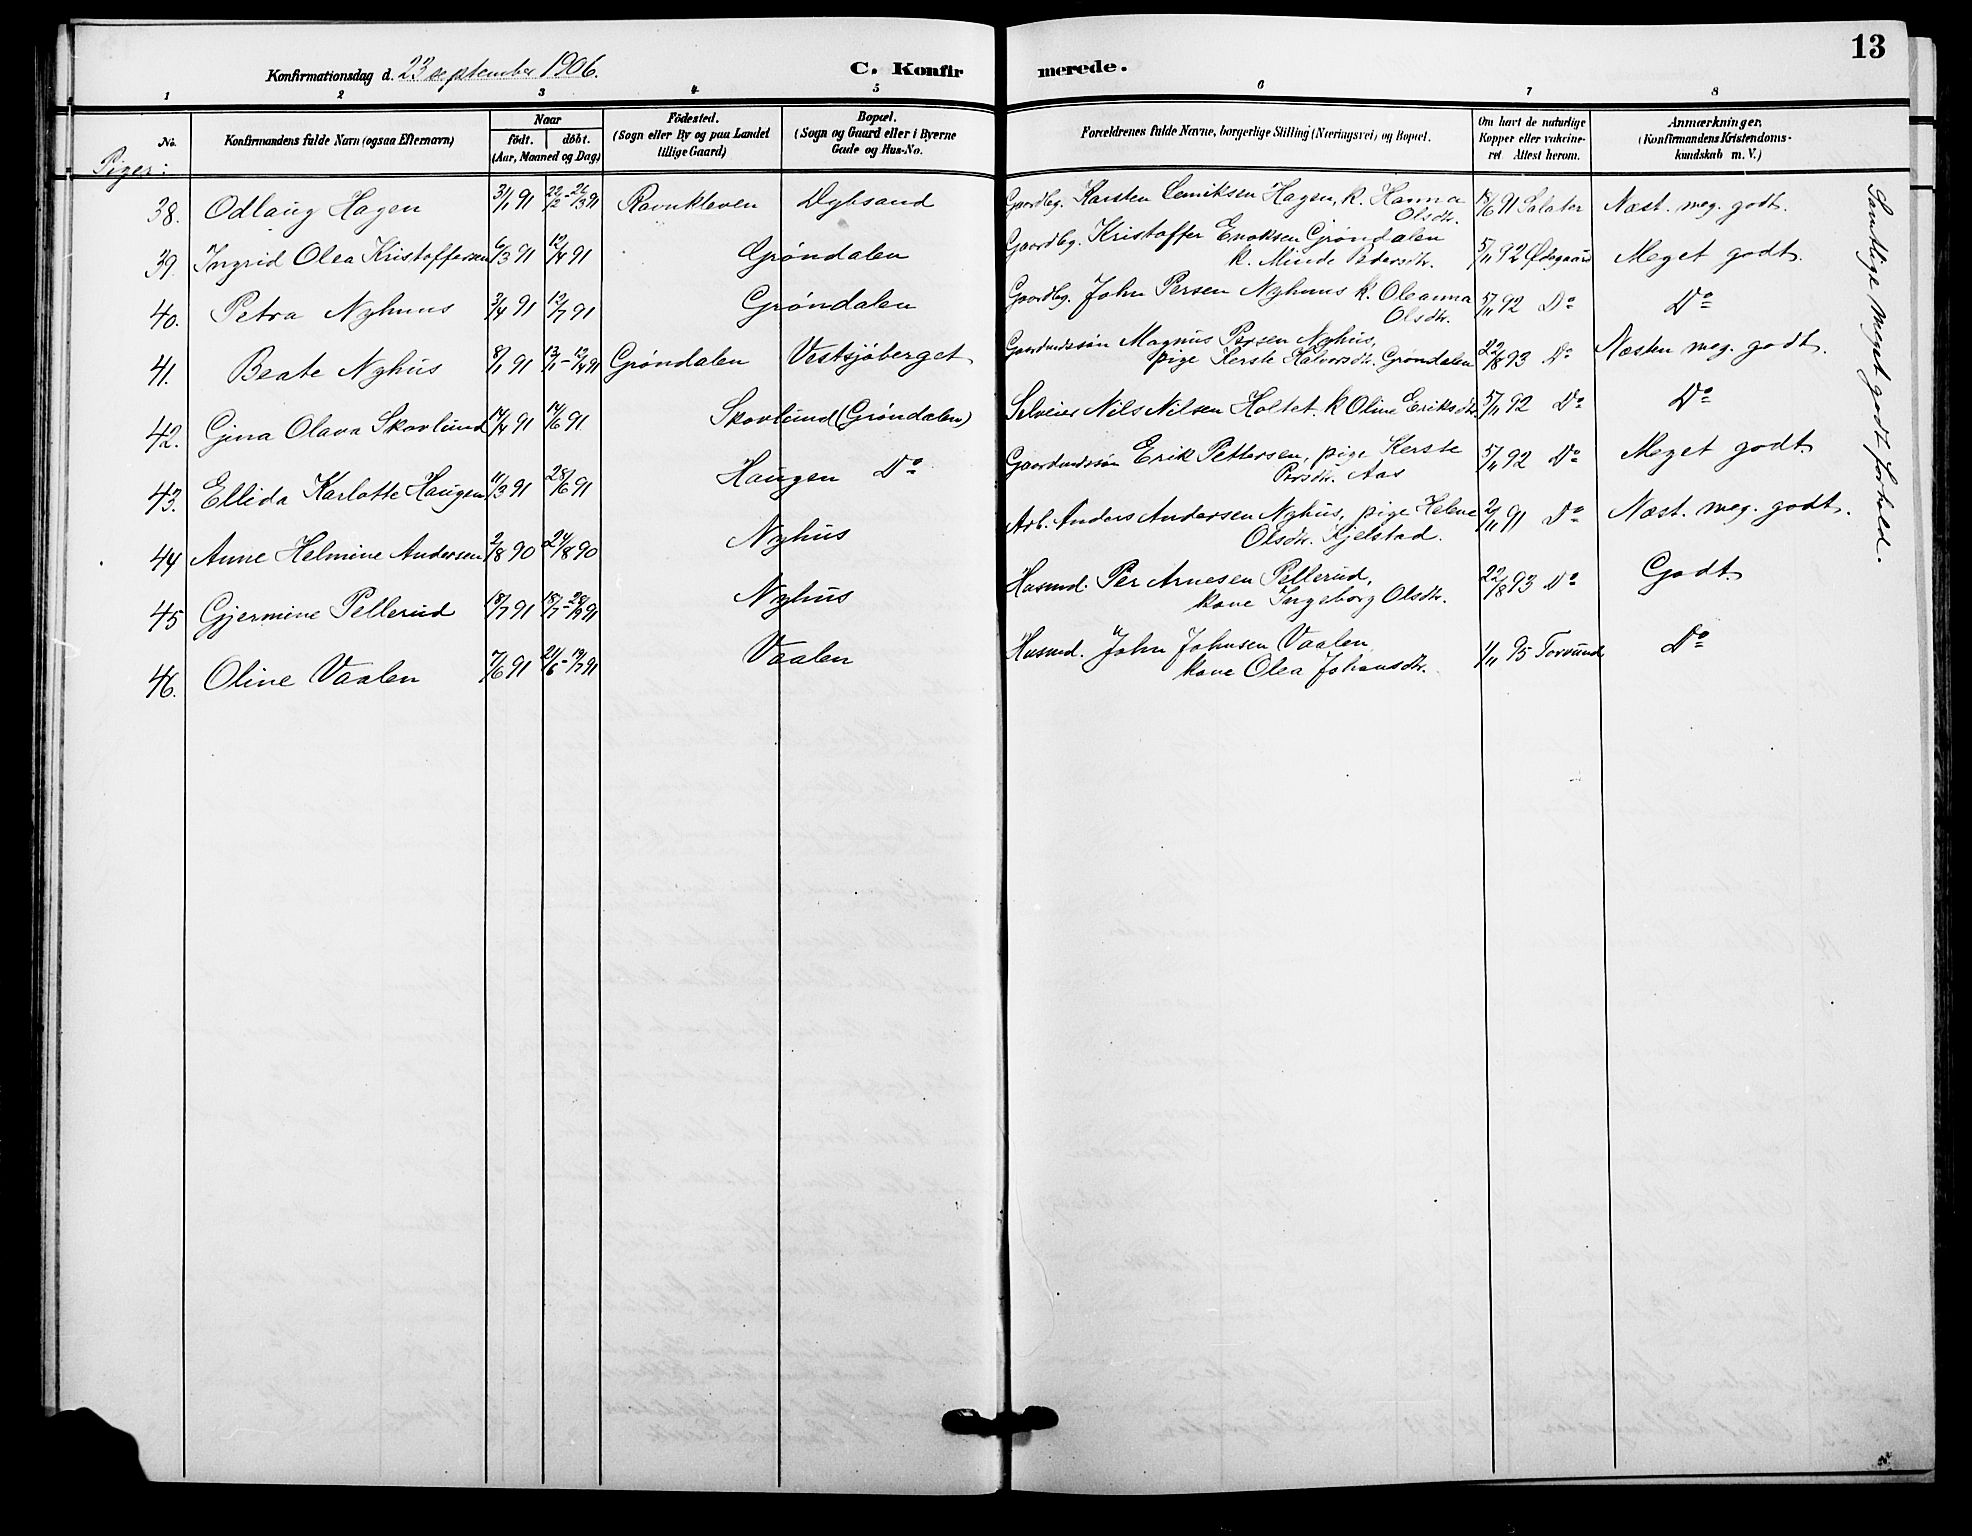 13
Konfirmationsdag d. 23 september 1906.
C. Konfirmerede.
1 2 3 4 5 6 7 8
No.
Konfirmandens fulde Navn (ogsaa Efternavn)
Naar
födt. döbt.
(Aar, Maaned og Dag)
Födested.
(Sogn eller By og paa Landet
tillige Gaard)
Bopæl.
(Sogn og Gaard eller i Byerne
Gade og Hus-No.
Forældrenes fulde Navne, borgerlige Stilling (Næringsvei) og Bopæl.
Om havt de naturlige
Kopper eller vakcine-
ret Attest herom.
Anmærkninger,
(Konfirmandens Kristendoms-
kundskab m. V.)
Piger:
38. Odlaug Hagen 3/1 91 22/2 - 26/3 91 Ravnkleven Dybsand Gaardbg. Karsten Hagen, k. Hanna
Olsdtr. 91 Salater Næst. meg. godt.
39. Ingrid Olea Kristoffersen 6/3 91 12/4 91 Grøndalen Gaardbg. Kristoffer Enoksen Grøndalen
k. Minde Pedersdtr. 5/11 92 Ødegaard Meget godt.
40. Petra Nyhuus 3/4 91 12/7 91 Grøndalen Gaardbg. John Persen Nyhuus k. Oleanna
Olsdtr. 5/11 92 Do Do
41. Beate Nyhus 8/1 91 Grøndalen Vestsjøberget Gaardmdssøn Magnus Persen Nyhus,
pige Kerste Halvorsdtr. Grøndalen 22/8 93 Do Næsten meg. godt.
42. Gina Olava Skovlund 14/4 91 14/6 91 Skovlund (Grøndalen) Selveier Nils Nilsen Holtet. k Oline Eriksdtr. 5/11 92 Do Do
43. Ellida Karlotte Haugen 11/3 91 28/6 91 Haugen Do Gaardmdssøn Erik Pettersen, pige Kerste
Persdtr. Aas 5/11 92 Do Meget godt.
44 Anne Helmine Andersen 2/8 90 24/8 90 Nyhus Arb. Anders Andersen Nyhus, pige Helene
Olsdtr. Kjelstad. 2/11 91 Do Næst. meg. godt.
45 Gjermine Pellerud 18/7 91 Nyhus Husmd. Per Arnesen Pellerud,
kone Ingeborg Olsdtr. 22/8 93 Do Godt.
46. Oline Vaalen 7/6 91 21/6 - 19/7 91 Vaalen Husmd. John Johnsen Vaalen,
kone Olea Johansdtr. 1/11 95 Torsund Do
Samtlige meget godt forhold.